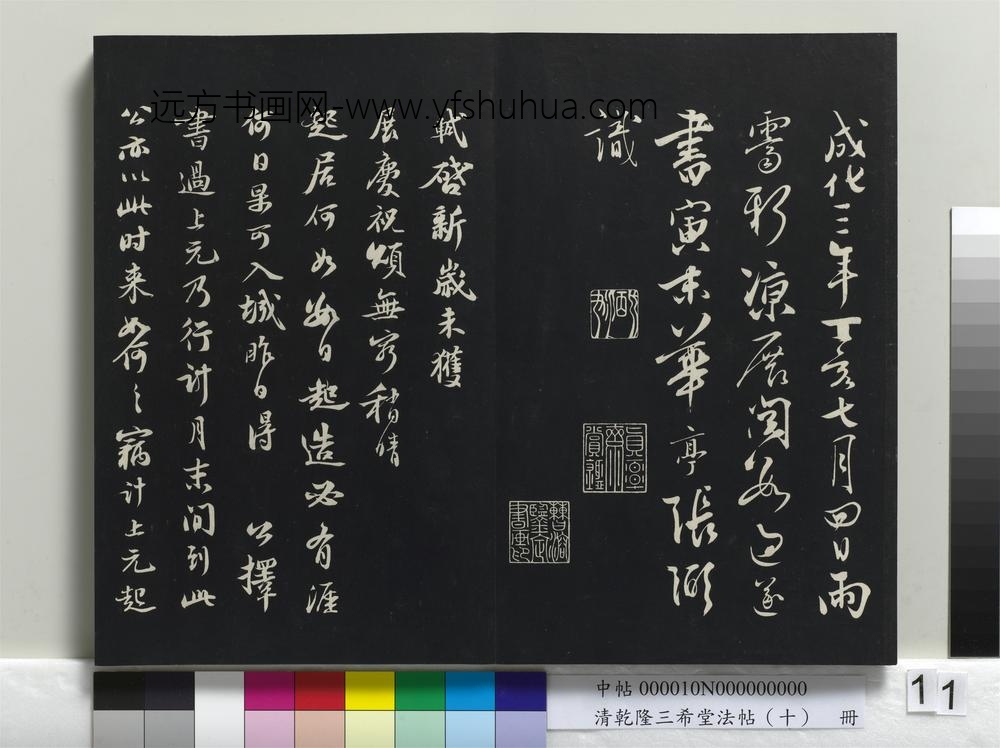 成化三年丁亥七月四日雨
霽新凉展閱數過遂
書寅末華亭張弼
識
軾啓新歲未獲
展慶祝頌無窮稍晴
起居何如數日起造必有涯
何日果可入城昨日得 公擇
書過上元乃行計月末間到此
公亦以此時来如何〻竊計上元起
远方书画网-www.yfshuhua.com
中帖 000010N000000000
清乾隆三希堂法帖（十） 冊
11